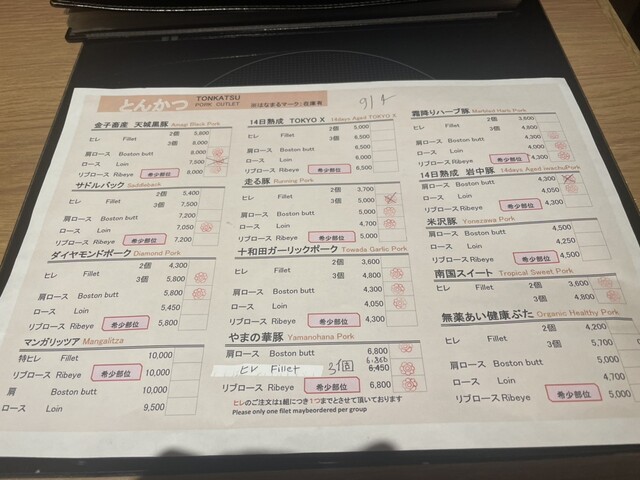 とんかつ TONKATSU PORK CUTLET ※はなまるマーク:在庫有
9/4
金子畜産 天城黒豚 Amagi Black Pork
ヒレ Fillet 2個 5,800
3個 8,000
肩ロース Boston butt 8,000
ロース Loin 7,500
リブロース Ribeye 希少部位 8,000
サドルバック Saddleback
ヒレ Fillet 2個 5,400
3個 7,500
肩ロース Boston butt 7,200
ロース Loin 7,050
リブロース Ribeye 希少部位 7,200
ダイヤモンドポーク Diamond Pork
ヒレ Fillet 2個 4,300
3個 5,800
肩ロース Boston butt 5,800
ロース Loin 5,450
リブロース Ribeye 希少部位 5,800
マンガリッツア Mangalitza
特ヒレ Fillet 10,000
リブロース Ribeye 希少部位 10,000
肩 Boston butt 10,000
ロース Loin 9,500
14日熟成 TOKYO X 14days Aged TOKYO X
ヒレ Fillet 2個 5,000
3個 6,500
肩ロース Boston butt 6,500
ロース Loin 6,000
リブロース Ribeye 希少部位 6,500
走る豚 Running Pork
ヒレ Fillet 2個 3,700
3個 5,000
肩ロース Boston butt 5,000
ロース Loin 4,700
リブロース Ribeye 希少部位 5,000
十和田ガーリックポーク Towada Garlic Pork
ヒレ Fillet 2個 3,600
3個 4,800
肩ロース Boston butt 4,300
ロース Loin 4,050
リブロース Ribeye 希少部位 4,300
やまの華豚 Yamanohana Pork
肩ロース Boston butt 6,800
ヒレ Fillet 3個 6,450
リブロース Ribeye 希少部位 6,800
ヒレのご注文は1組につき1つまでとさせて頂いております
Please only one filet maybeordered per group
霜降りハーブ豚 Marbled Herb Pork
ヒレ Fillet 2個 3,600
3個 4,800
肩ロース Boston butt 4,300
ロース Loin 4,000
リブロース Ribeye 希少部位 4,300
14日熟成 岩中豚 14days Aged IwachuPork
肩ロース Boston butt 4,300
ロース Loin 4,050
リブロース Ribeye 希少部位 4,300
米沢豚 Yonezawa Pork
肩ロース Boston butt 4,500
ロース Loin 4,250
リブロース Ribeye 希少部位 4,500
南国スイート Tropical Sweet Pork
ヒレ Fillet 2個 3,600
3個 4,800
無薬あい健康ぶた Organic Healthy Pork
ヒレ Fillet 2個 4,200
3個 5,700
肩ロース Boston butt 5,000
ロース Loin 4,700
リブロース Ribeye 希少部位 5,000